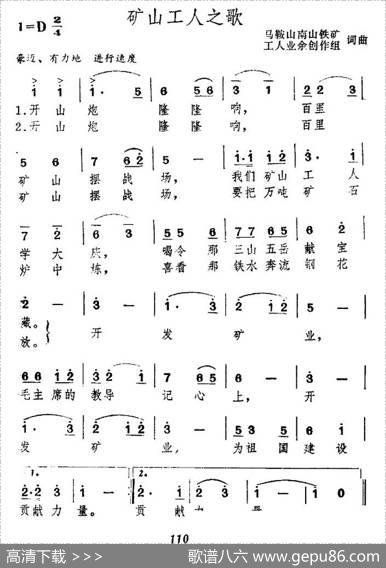 矿山工人之歌
1=D 2/4
马鞍山南山铁矿
工人业余创作组 词曲
豪迈、有力地 进行速度
1 1 1· 5 6 3 1· 6
1.开山炮 隆隆响， 百里
2.开山炮 隆隆响， 百里
5 6 7 62 5 — 1·1 12 1 6
矿山摆战场， 我们矿山工人
矿山摆战场， 要把万吨矿石
7· 2 6 3 5 53 2 223 55 6 2·
学大庆， 喝令那三山五岳献宝
炉中炼， 喜看那铁水奔流钢花
2 — 3 — 1 — 2 — 5 —
藏。 开发矿业，
放。
66 612 3 12 7 65 6 — 3 —
毛主席的教导记心上， 开
发矿业， 为祖国建设
1. 2.
2·2 3 1 — 2· 2 3 — 1 — 1 0
贡献力量。 贡献力
110
高清下载 >>> 歌谱八六 www.gepu86.com